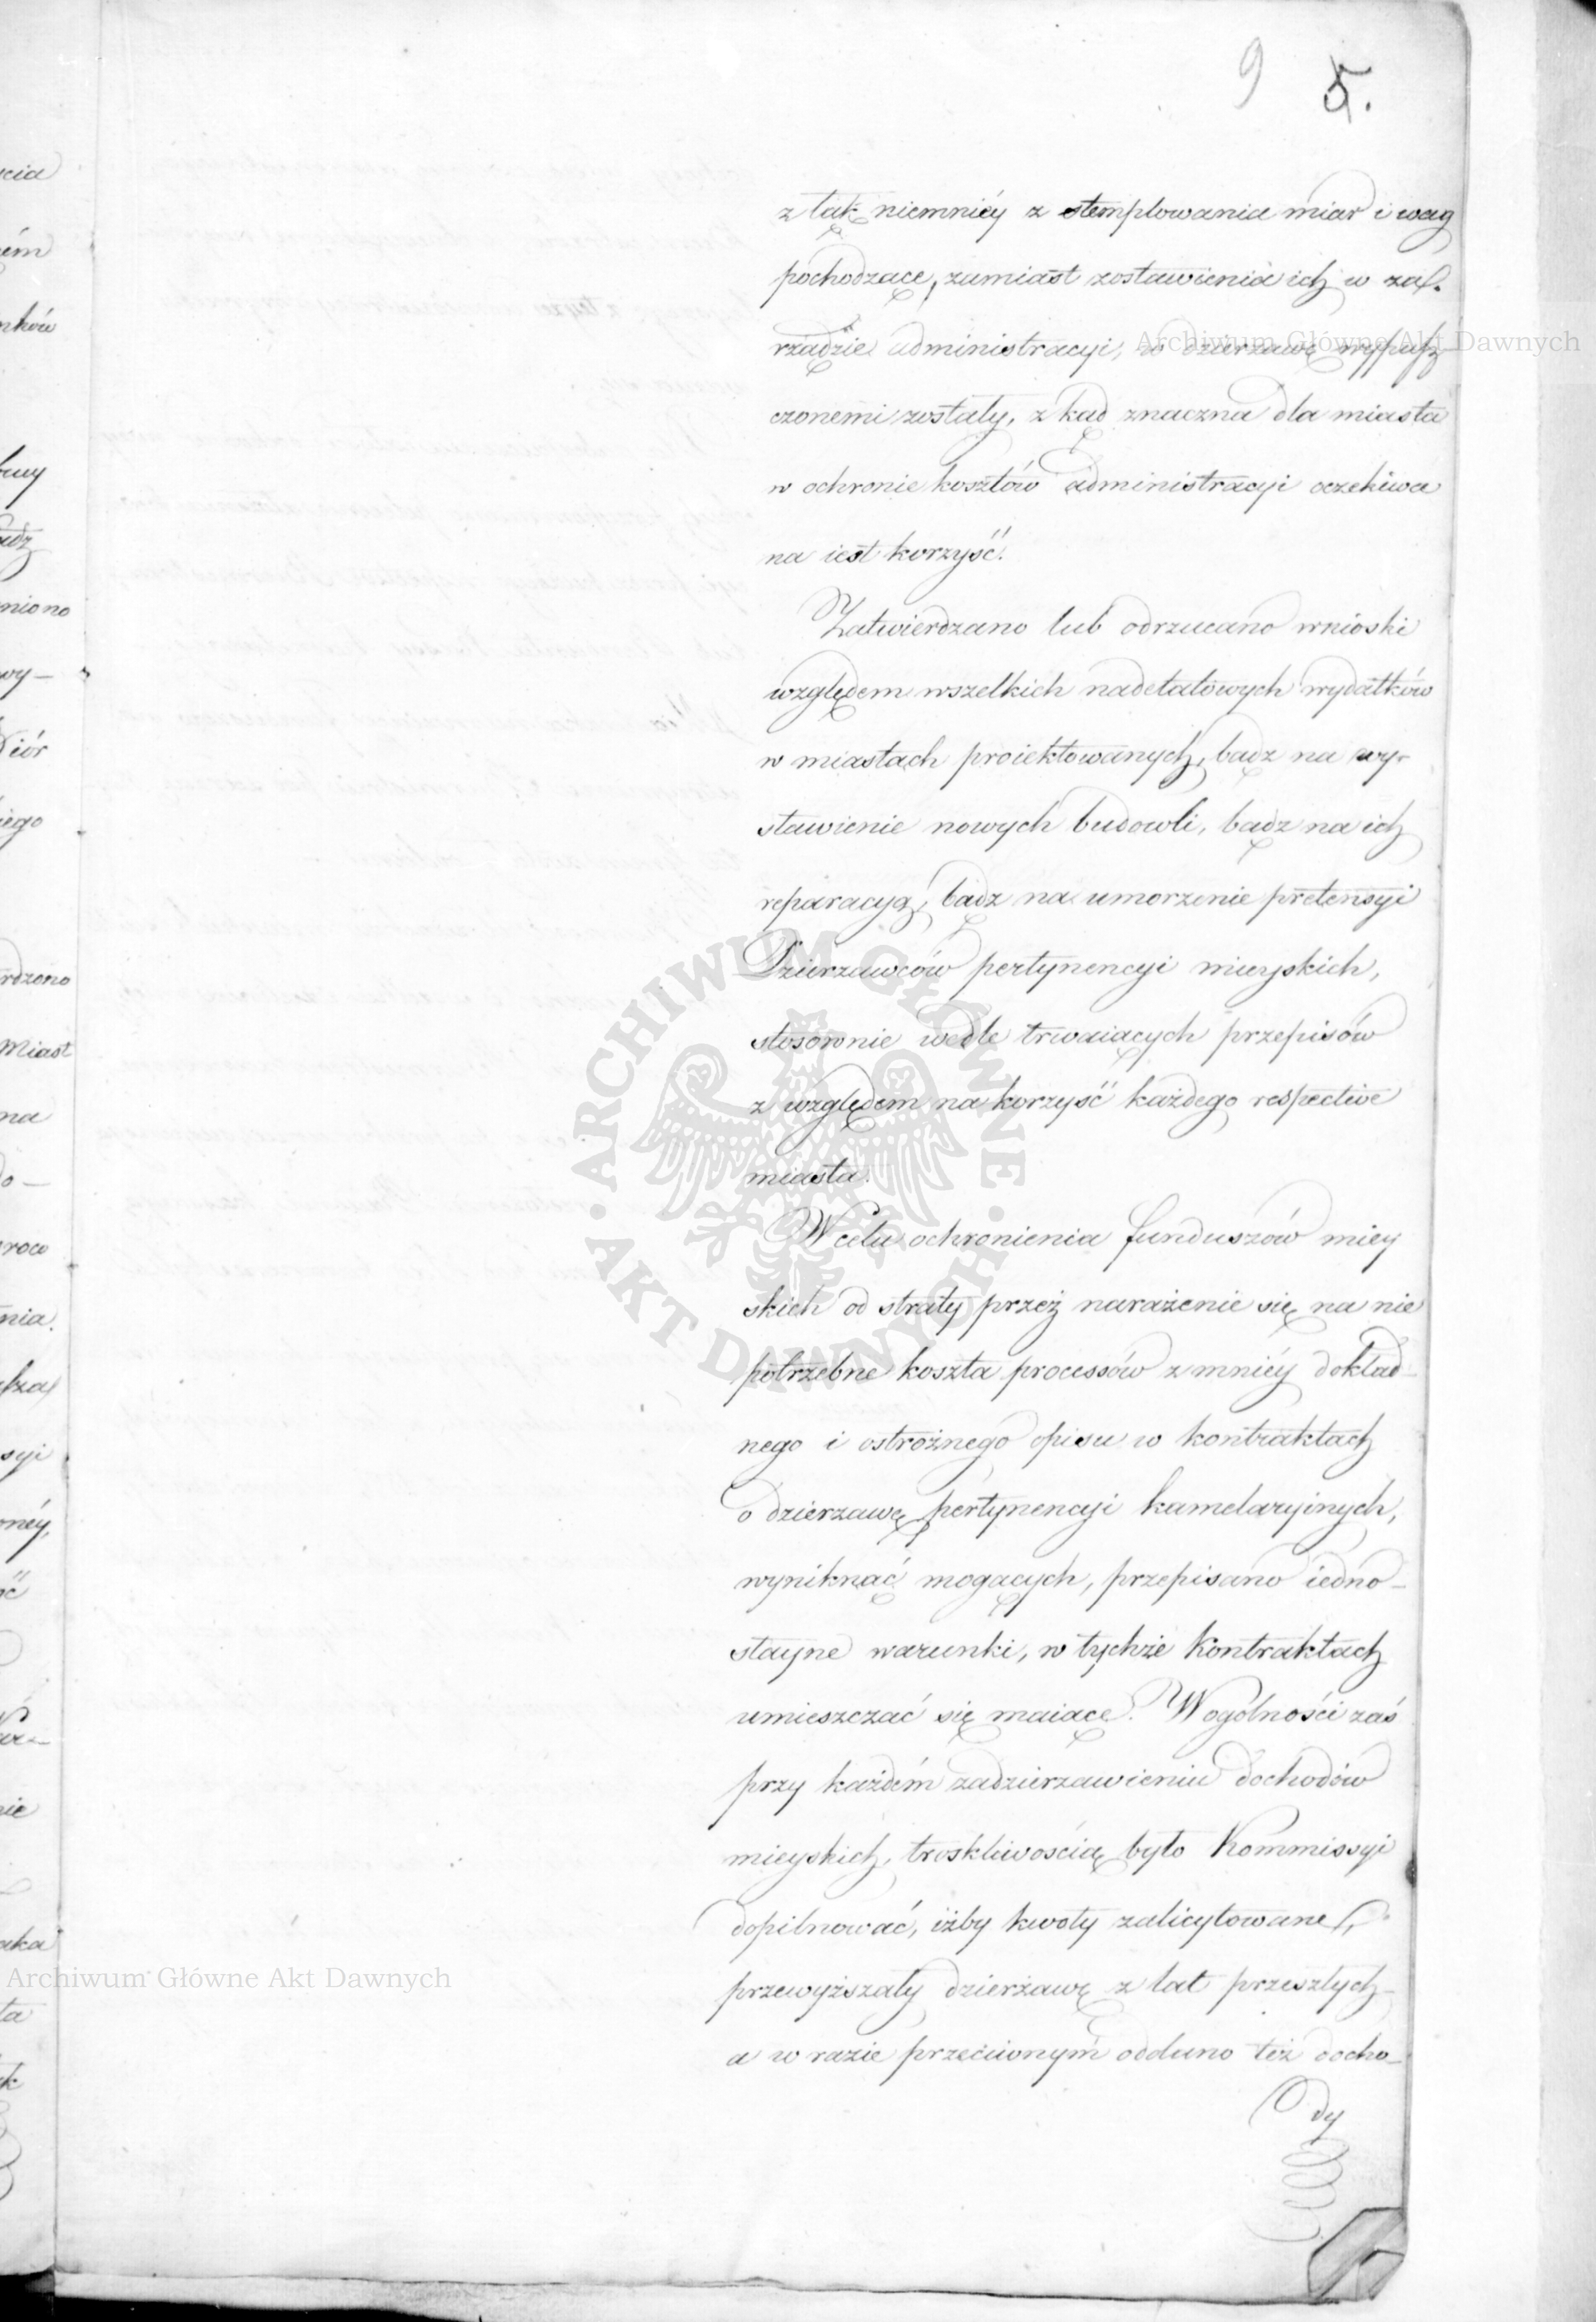 9 5.
z tąk niemniéy z stemplowania miar i wag
pochodzące, zamiast zostawienia ich w za-
rządzie administracyi, w dzierzawę wypusz
czonemi zostały, z kąd znaczna dla miasta
w ochronie kosztów administracyi oczekiwa
na iest korzyść.
Zatwierdzano lub odrzucano wnioski
względem wszelkich nadetatowych wydatków
w miastach proiektowanych, bądz na wy-
stawienie nowych budowli, bądz na ich
reparacyą, bądz na umorzenie pretensyi
Dzierzawców pertynencyi mieyskich,
stosownie wedle trwaiących przepisów
z względem na korzyść każdego respective
miasta.
W celu ochronienia funduszów miey
skich od straty przez narażenie się na nie
potrzebne koszta processów z mniéy dokład-
nego i ostrożnego opisu w kontraktach
o dzierzawę pertynencyi kamelaryinych,
wyniknąć mogących, przepisano iedno-
stayne warunki, w tychże Kontraktach
umieszczać się maiące. W ogólności zaś
przy każdém zadzierzawieniu dochodów
mieyskich, troskliwością było Kommissyi
dopilnować, iżby kwoty zalicytowane,
przewyższały dzierżawę z lat przeszłych
a w razie przeciwnym oddano też docho-
dy
cia
ém
nków
niono
wy-
iór
iego
rdzono
Miast
na
do-
nia.
syi
onéy,
ie
aka
ta
Archiwum Główne Akt Dawnych
ARCHIWUM GŁÓWNE · AKT DAWNYCH ·
Archiwum Główne Akt Dawnych